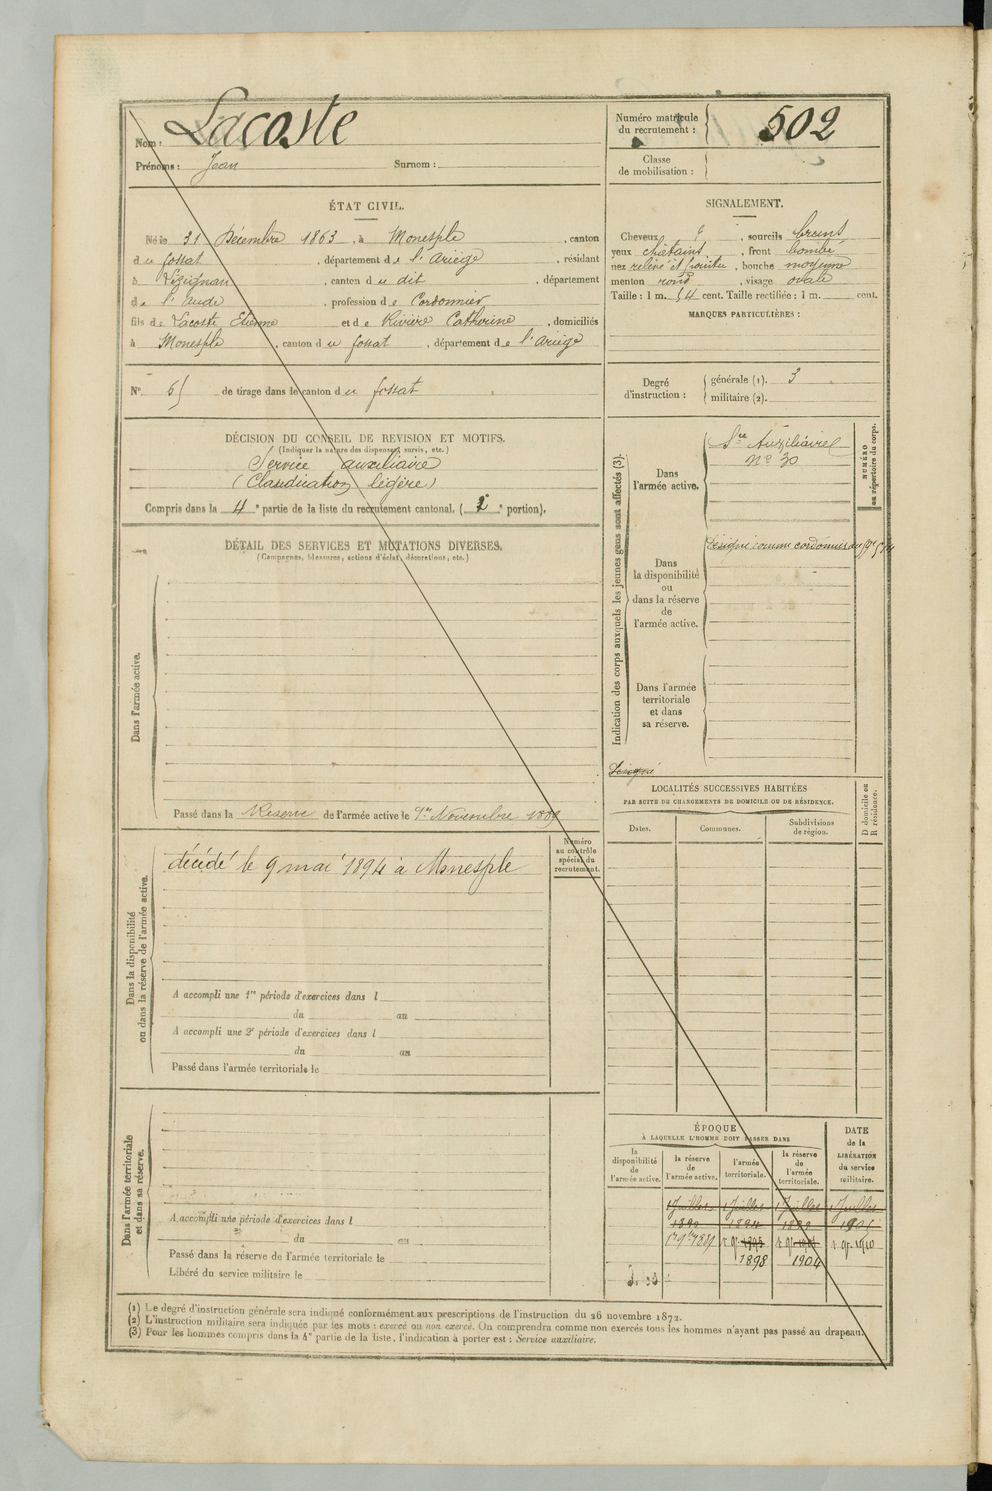 Nom : Lacoste
Prénoms : Jean Surnom :
Numéro matricule
du recrutement : 502
Classe
de mobilisation :
ÉTAT CIVIL.
Né le 31 Décembre 1863, à Monesple, canton
du fossat, département de l'Ariège, résidant
à Lézignan, canton du dit, département
de l'aude, profession de Cordonnier
fils de Lacoste Etienne et de Rivière Catherine, domiciliés
à Monesple, canton du fossat, département de l'ariège
SIGNALEMENT.
Cheveux , sourcils bruns
yeux châtains, front bombé
nez relevé et pointu, bouche moyenne
menton rond, visage ovale
Taille : 1 m. 54 cent. Taille rectifiée : 1 m. cent.
MARQUES PARTICULIÈRES :
N° 65 de tirage dans le canton du fossat
Degré
d'instruction :
générale (1). 3
militaire (2).
DÉCISION DU CONSEIL DE REVISION ET MOTIFS.
(Indiquer la nature des dispenses, sursis, etc.)
Service auxiliaire
(Claudication légère)
Compris dans la 4e partie de la liste du recrutement cantonal. ( e portion).
DÉTAIL DES SERVICES ET MUTATIONS DIVERSES.
(Campagnes, blessures, actions d'éclat, décorations, etc.)
Dans l'armée active.
Passé dans la Réserve de l'armée active le 1er Novembre 1889
Indication des corps auxquels les jeunes gens sont affectés (3).
NUMÉRO
au répertoire du corps.
Dans
l'armée active.
Sce Auxiliaire
N° 30
Dans
la disponibilité
ou
dans la réserve
de
l'armée active.
Désigné comme cordonnier au
Dans l'armée
territoriale
et dans
sa réserve.
Désigné
LOCALITÉS SUCCESSIVES HABITÉES
PAR SUITE DE CHANGEMENTS DE DOMICILE OU DE RÉSIDENCE.
Dates.
Communes.
Subdivisions
de région.
D domicile ou
R résidence.
Dans la disponibilité
ou dans la réserve de l'armée active.
Numéro
au contrôle
spécial du
recrutement.
décédé le 9 mai 1894 à Monesple
A accompli une 1re période d'exercices dans l
du au
A accompli une 2e période d'exercices dans l
du au
Passé dans l'armée territoriale le
Dans l'armée territoriale
et dans sa réserve.
A accompli une période d'exercices dans l
du au
Passé dans la réserve de l'armée territoriale le
Libéré du service militaire le
ÉPOQUE
À LAQUELLE L'HOMME DOIT PASSER DANS
DATE
de la
LIBÉRATION
du service
militaire.
la
disponibilité
de
l'armée active.
la réserve
de
l'armée active.
l'armée
territoriale.
la réserve
de
l'armée
territoriale.
1 Juillet 1 Juillet 1 Juillet 1 Juillet
1890 1894 1899
1898 1904
(1) Le degré d'instruction générale sera indiqué conformément aux prescriptions de l'instruction du 26 novembre 1872.
(2) L'instruction militaire sera indiquée par les mots : exercé ou non exercé. On comprendra comme non exercés tous les hommes n'ayant pas passé au drapeau.
(3) Pour les hommes compris dans la 4e partie de la liste, l'indication à porter est : Service auxiliaire.